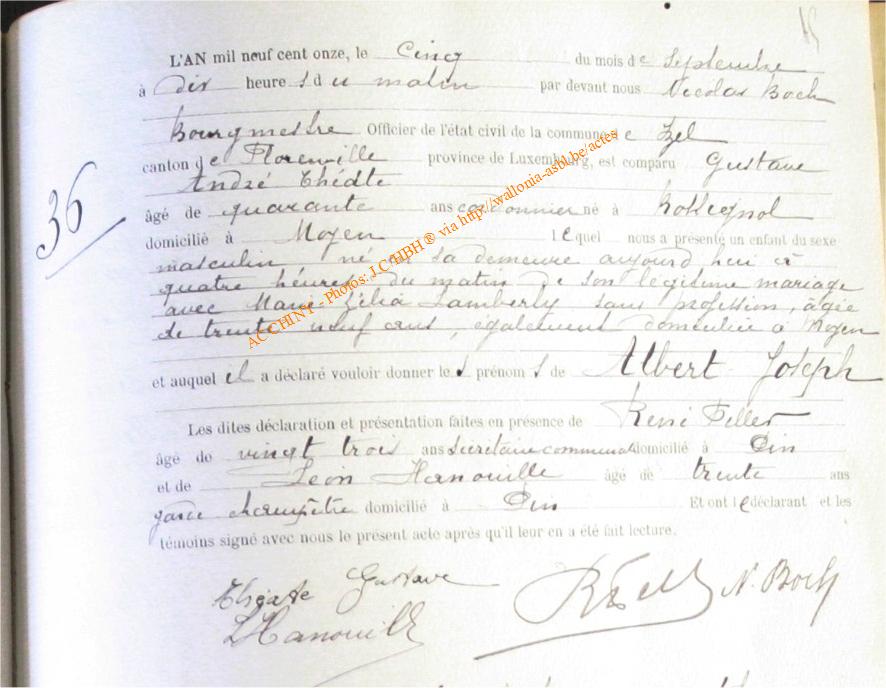 L'AN mil neuf cent onze, le cinq du mois de Septembre
à dix heures du matin par devant nous Nicolas Boch
Bourgmestre Officier de l'état civil de la commune de Izel
canton de Florenville province de Luxembourg, est comparu Gustave
André Théâte
36
âgé de quarante ans cordonnier né à Rossignol
domicilié à Moyen lequel nous a présenté un enfant du sexe
masculin né en sa demeure aujourd'hui à
quatre heures du matin de son légitime mariage
avec Marie Zélia Lamberty sans profession, âgée
de trente neuf ans, également domiciliée à Moyen
et auquel il a déclaré vouloir donner les prénoms de Albert Joseph
Les dites déclaration et présentation faites en présence de René
âgé de vingt trois ans secrétaire communal domicilié à Pin
et de Léon Hanouille âgé de trente ans
garde champêtre domicilié à Pin Et ont le déclarant et les
témoins signé avec nous le présent acte après qu'il leur en a été fait lecture.
Théâte Gustave
N. Boch
L Hanouille
ACCHINY - Photos: J.C HBH ® via http://wallonia-asbl.be/actes